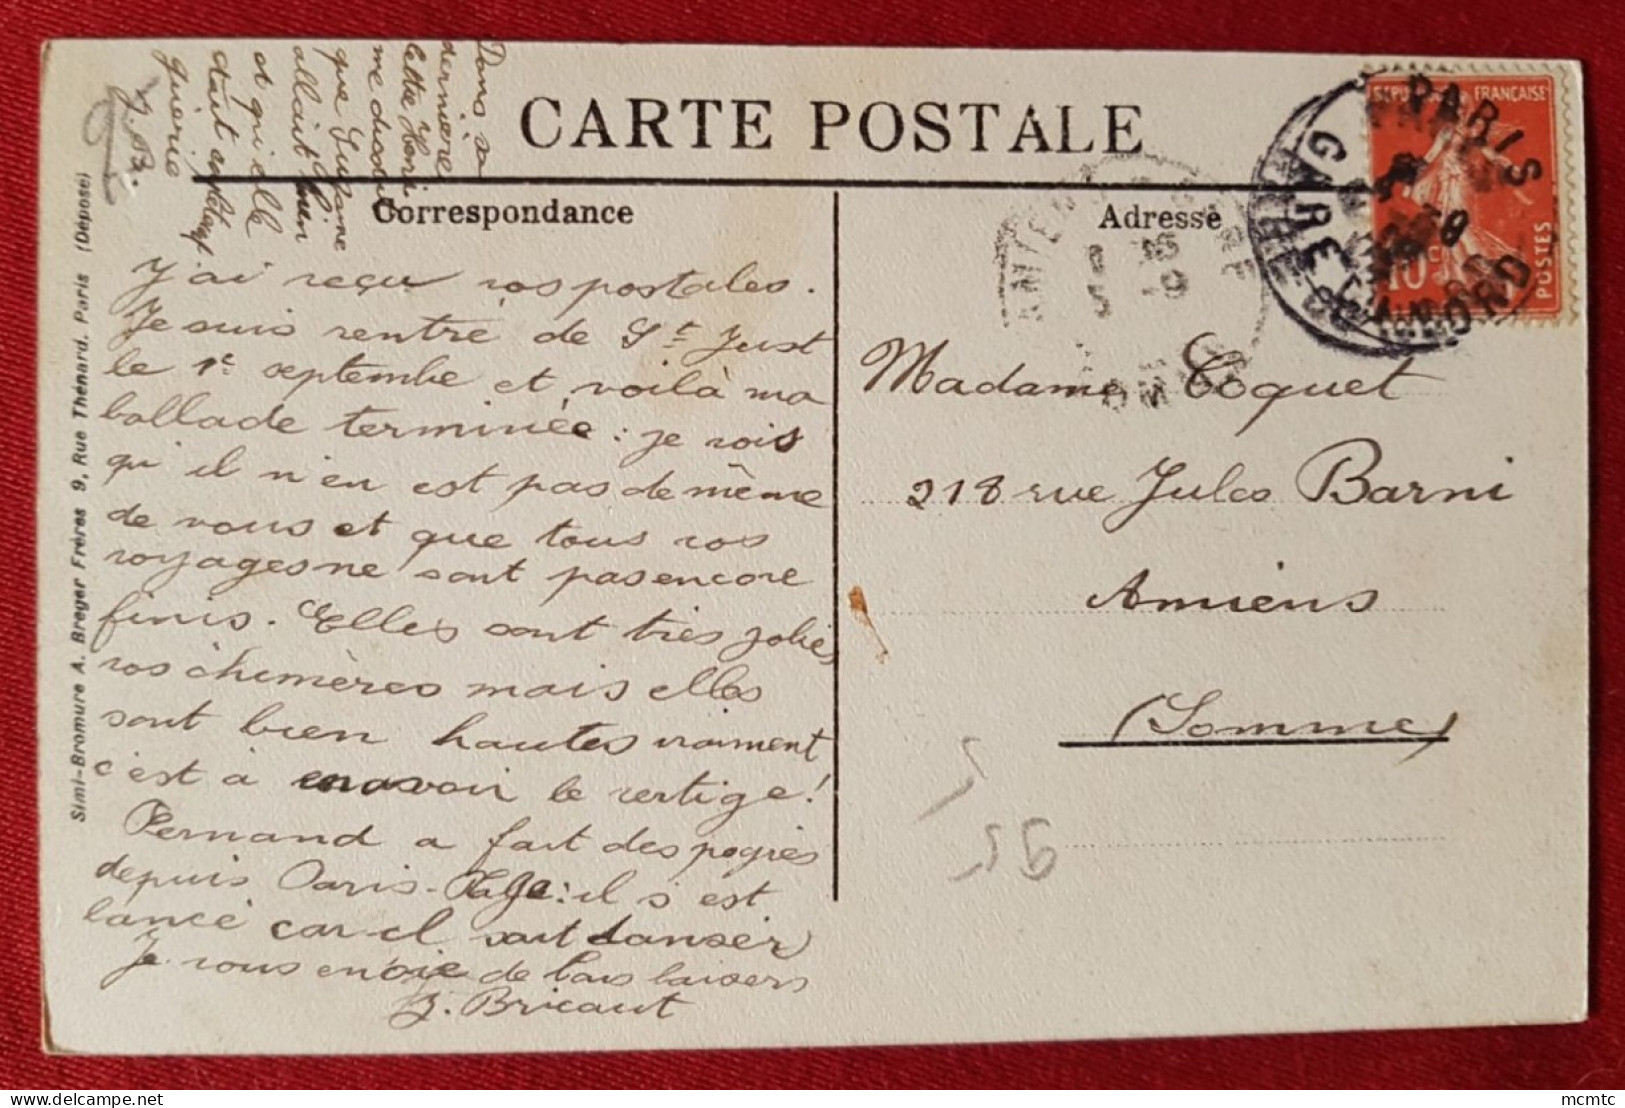 CARTE POSTALE
Correspondance
Adresse
Dans sa
dernière
lettre Henri
me disait
que Suzanne
allait bien
et qu'elle
était
guérie
J. B.
J'ai reçu vos postales.
Je suis rentré de St Just
le 1er septembre et voilà ma
ballade terminée : je vois
qu'il n'en est pas de même
de vous et que tous vos
voyages ne sont pas encore
finis. Elles sont très jolies
vos chimères mais elles
sont bien hautes vraiment
c'est à en avoir le vertige !
Fernand a fait des pogrès
depuis Paris-Plage : il s'est
lancé car il sait danser
Je vous envoie de bons baisers
J. Bricaut
Madame Coquet
218 rue Jules Barni
Amiens
(Somme)
RÉPUBLIQUE FRANÇAISE
10 c
POSTES
PARIS
GARE DU NORD
55
Simi-Bromure A. Breger Frères 9, Rue Thénard. Paris (Déposé)
mcmtc